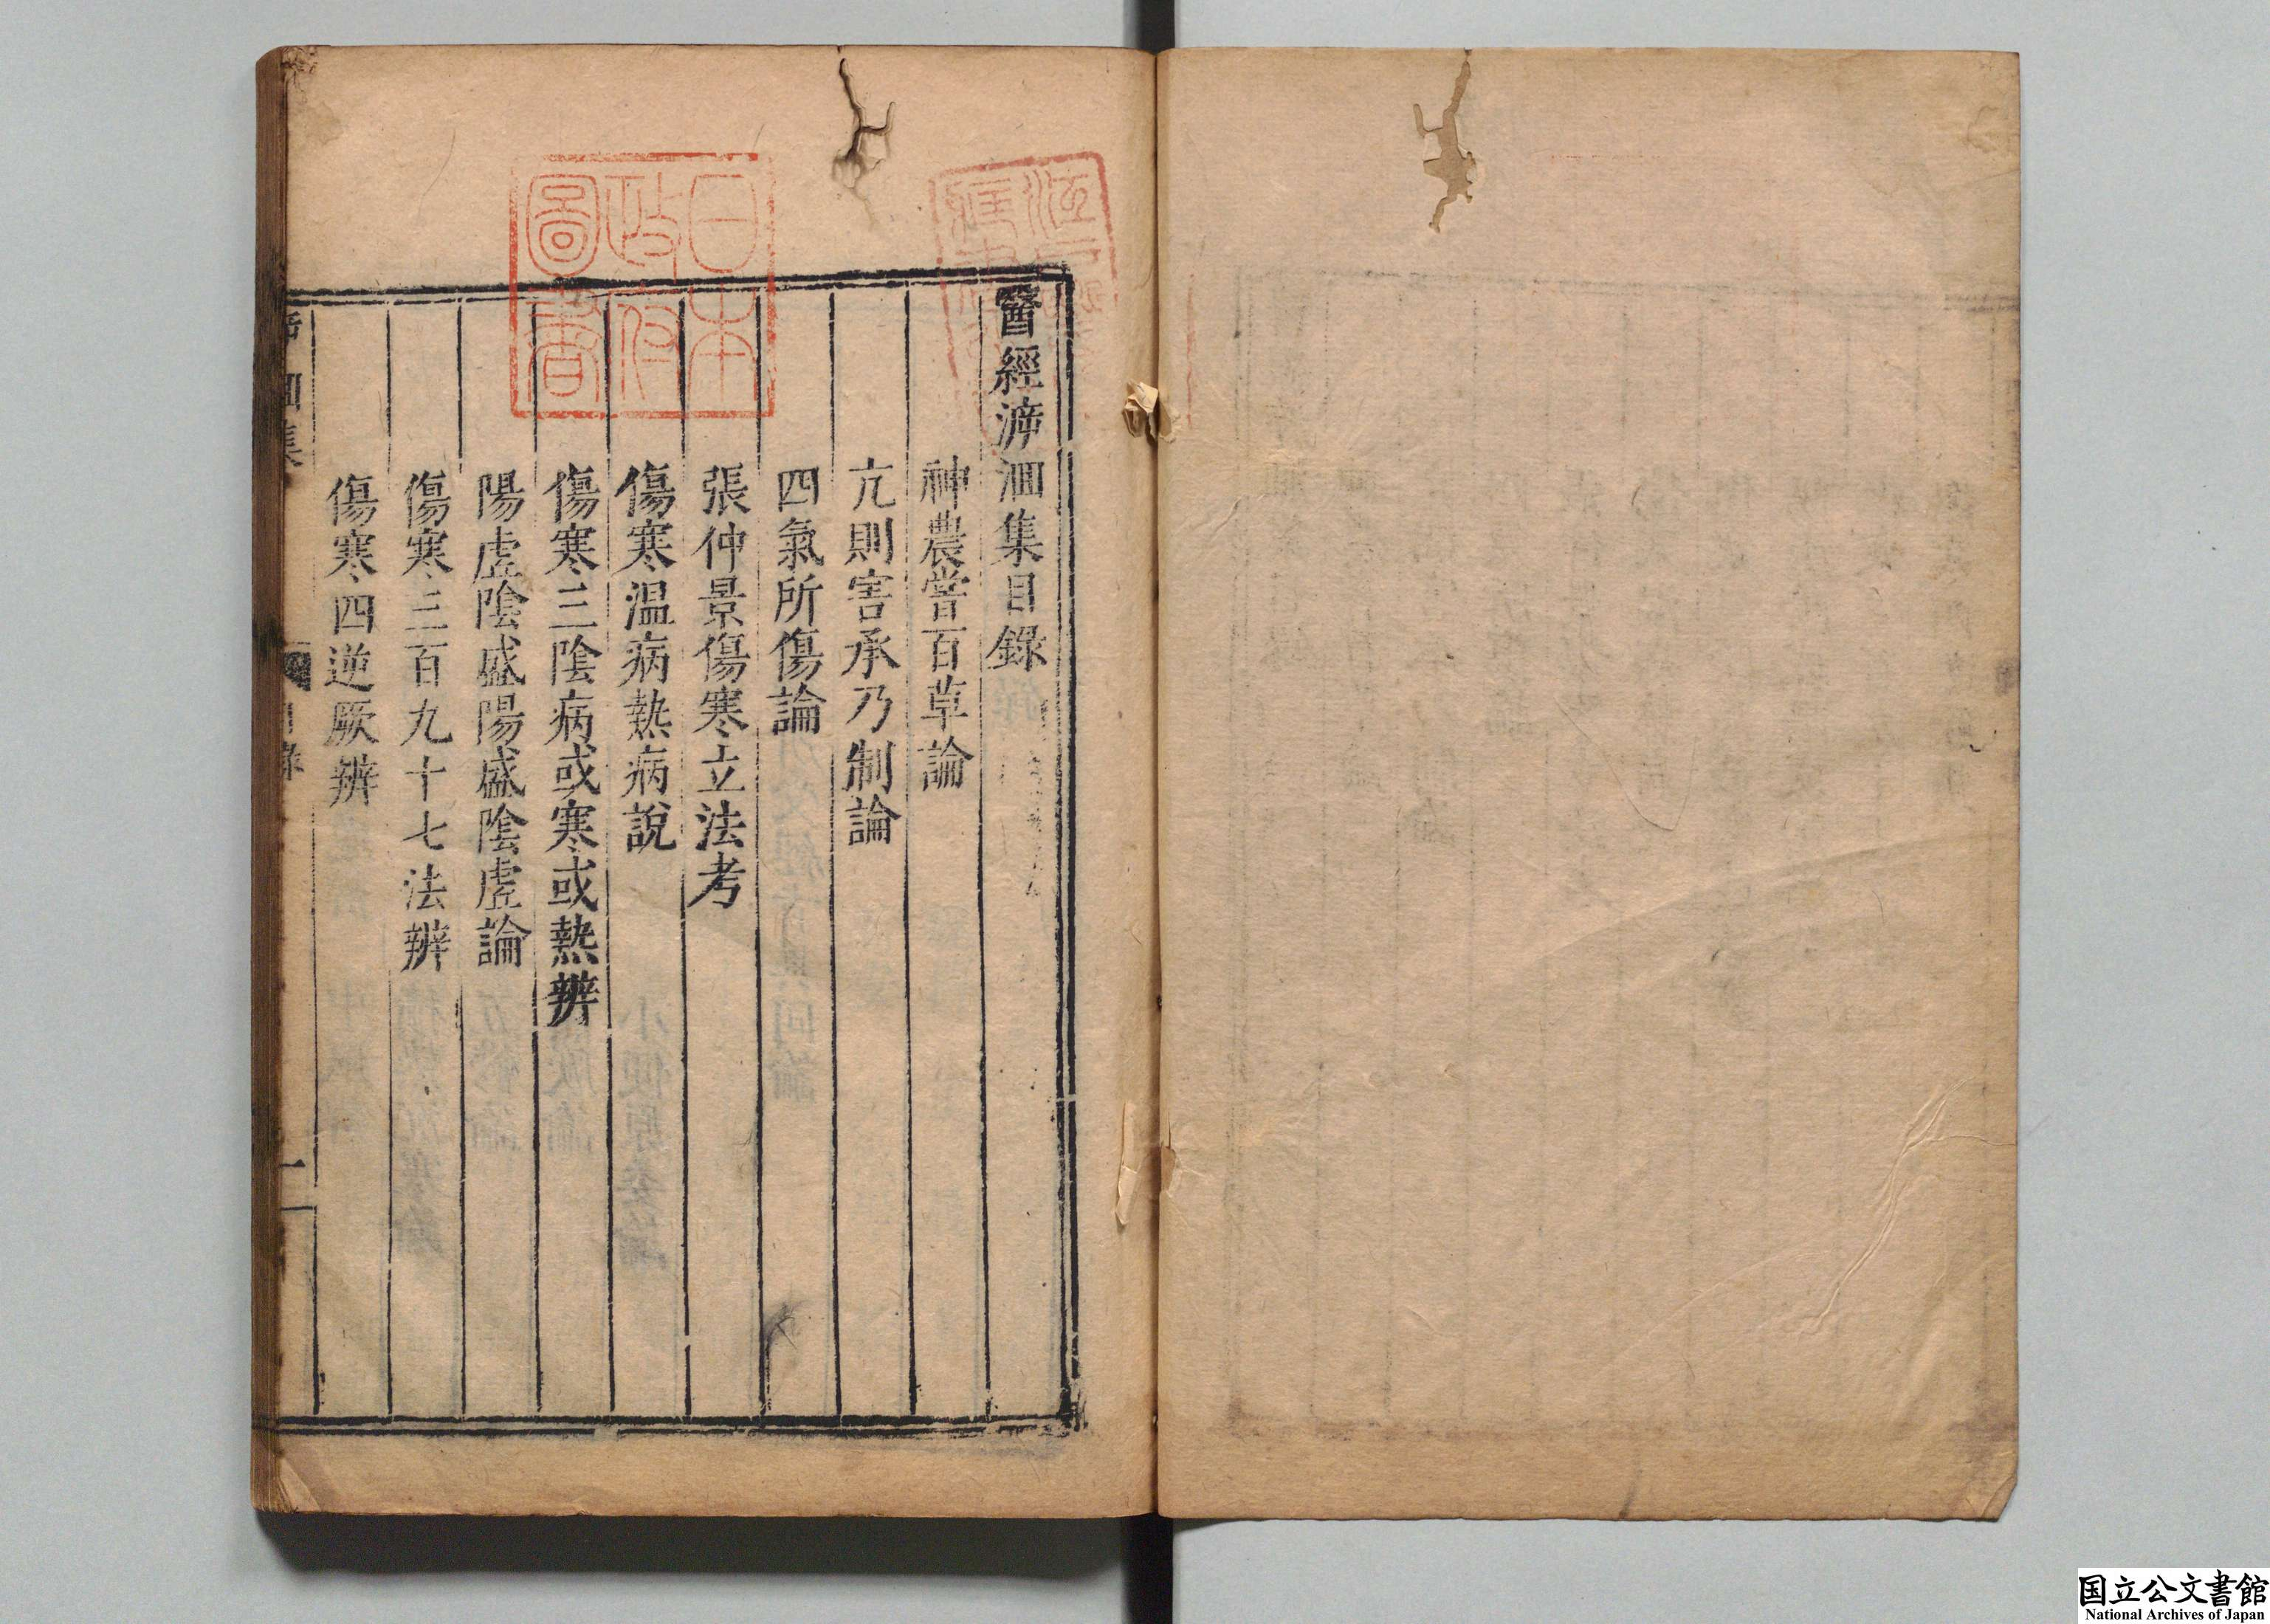 醫經㴑洄集目錄
神農嘗百草論
亢則害承乃制論
四氣所傷論
張仲景傷寒立法考
傷寒温病熱病說
傷寒三陰病或寒或熱辨
陽虛陰盛陽盛陰虛論
傷寒三百九十七法辨
傷寒四逆厥辨
洄集
目錄
一
日本
政府
圖書
国立公文書館
National Archives of Japan